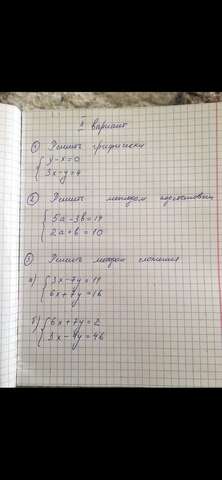 II вариант
① Решить графически
{ y - x = 0
3x - y = 4
② Решить методом подстановки
{ 5a - 3b = 14
2a + b = 10
③ Решить методом сложения
а) { 3x - 7y = 11
6x + 7y = 16
б) { 6x + 7y = 2
3x - 4y = 46